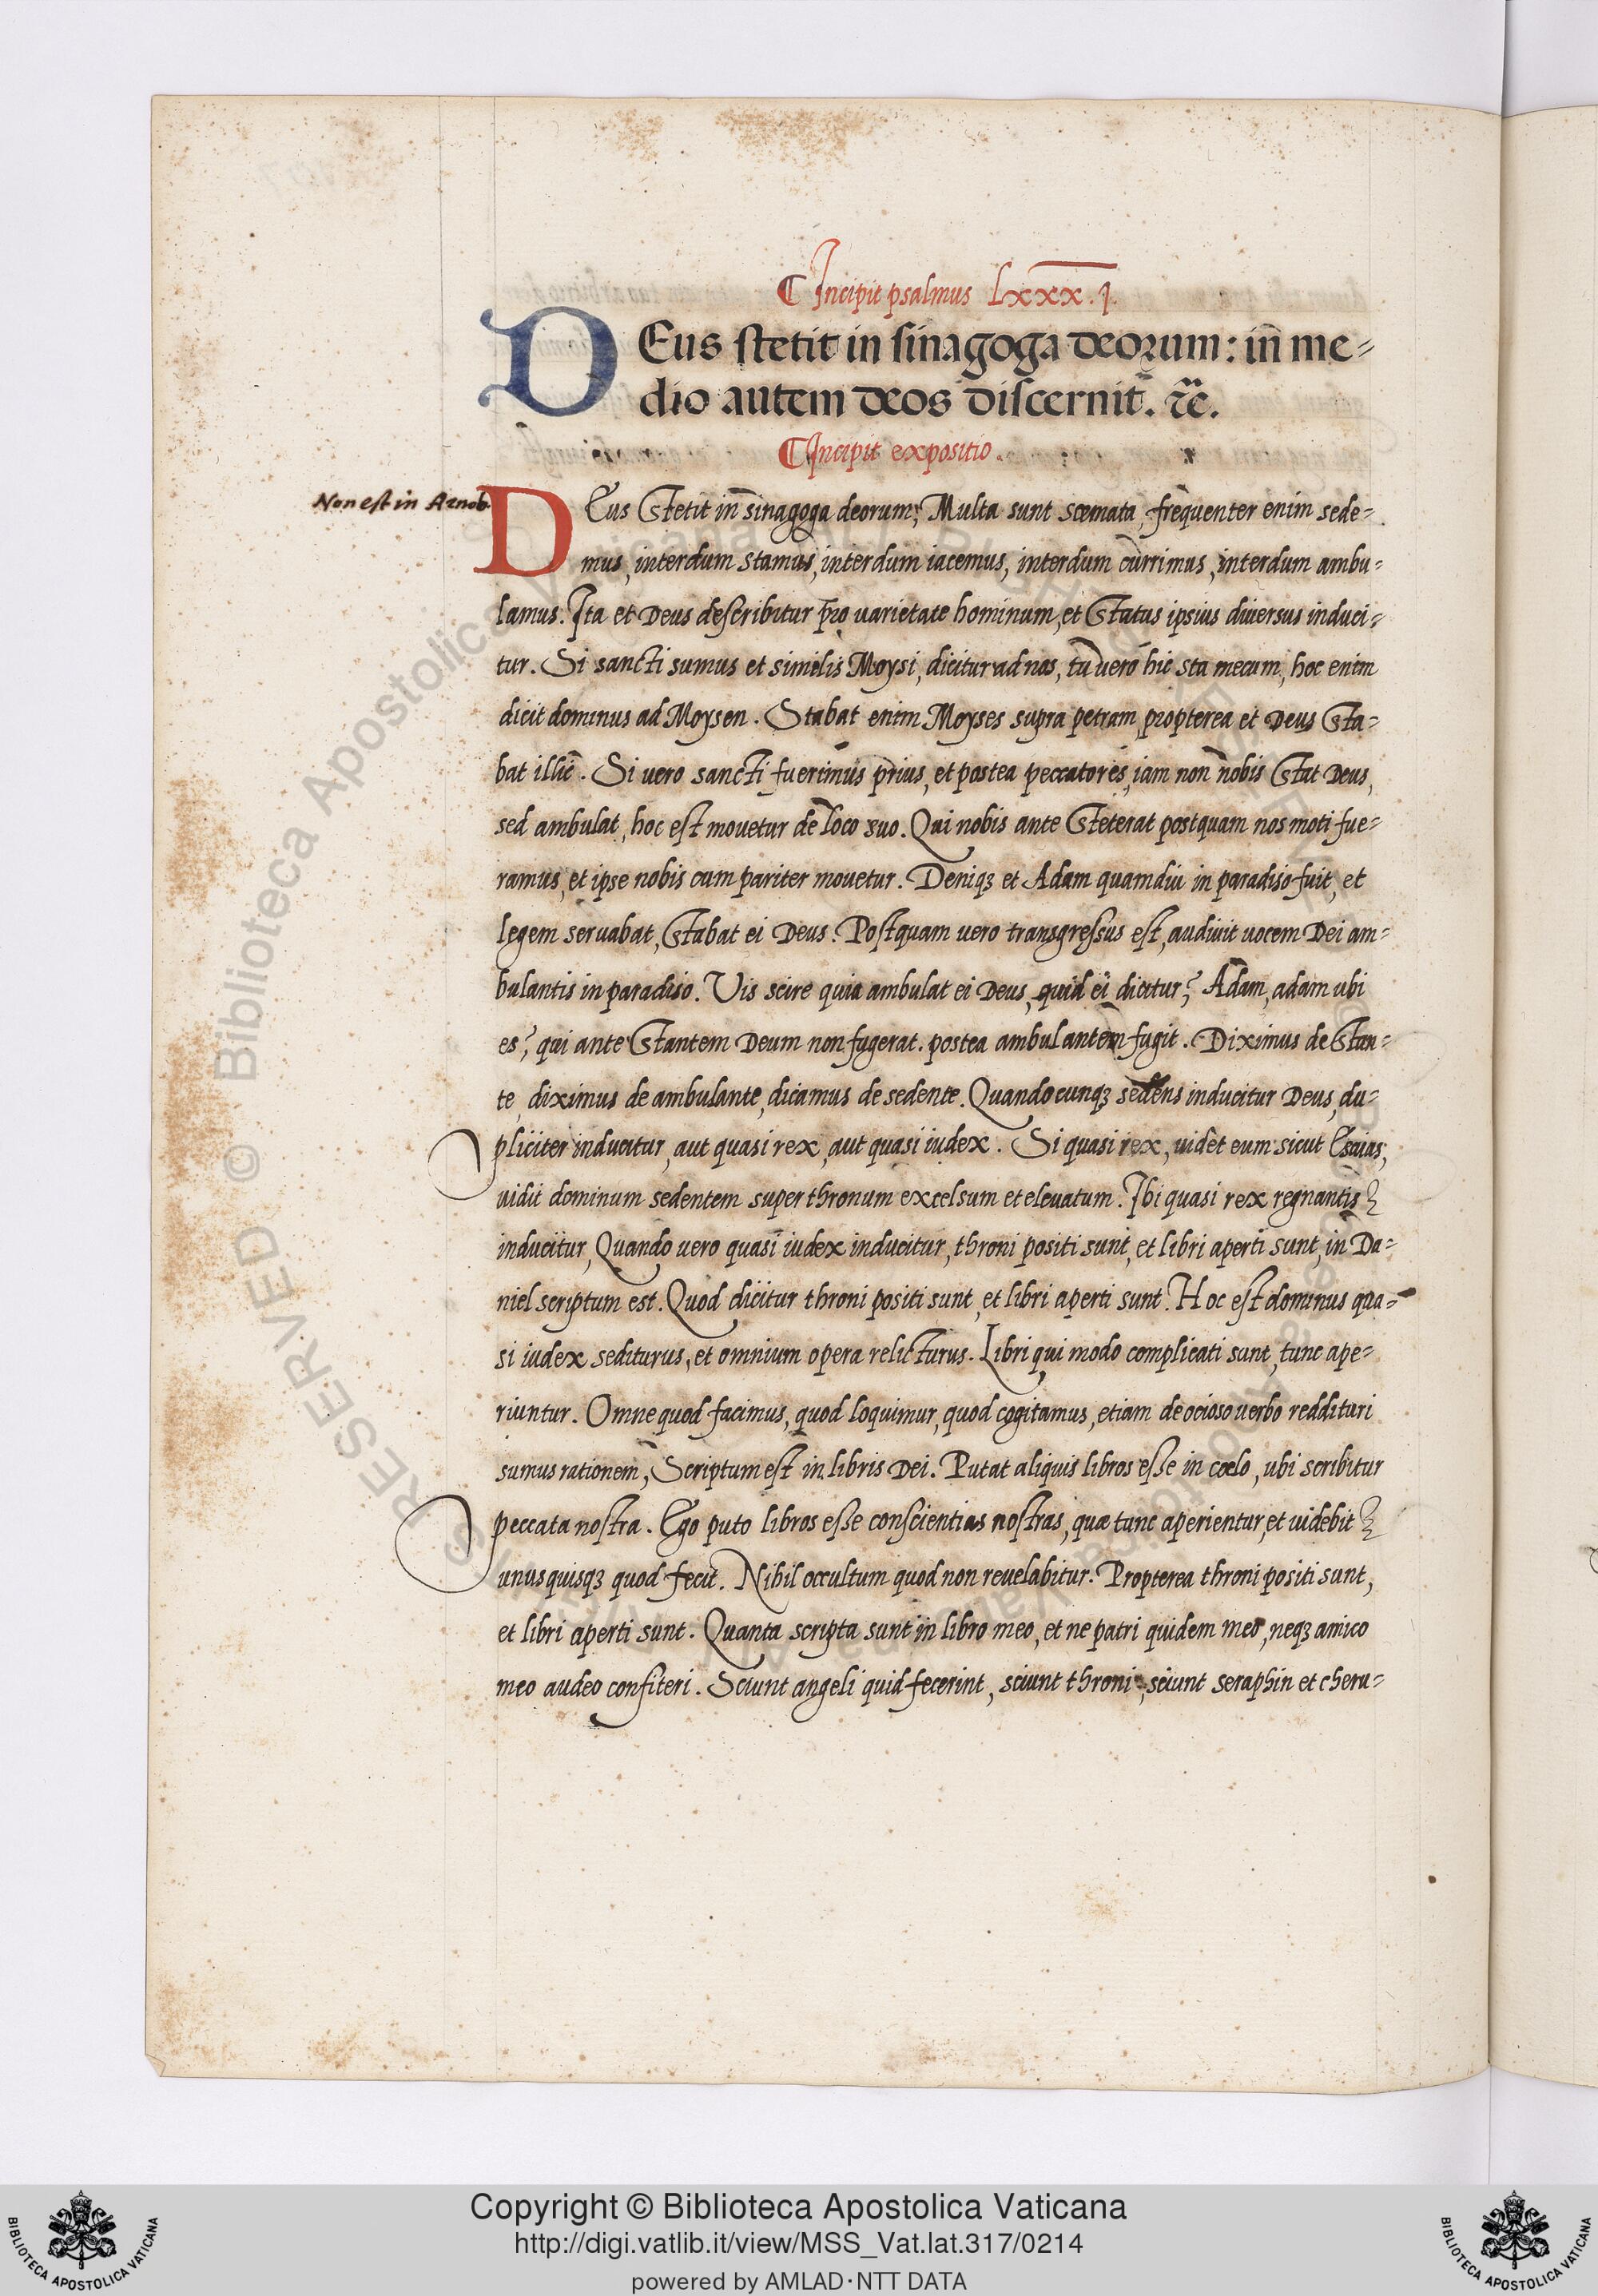 Incipit psalmus Lxxx.j.
DEus stetit in sinagoga deorum: in me-
dio autem deos discernit. &c.
Incipit expositio.
Non est in Arnob.
DEus stetit in sinagoga deorum; Multa sunt scemata, frequenter enim sede-
mus, interdum stamus, interdum iacemus, interdum currimus, interdum ambu-
lamus. Ita et Deus describitur pro varietate hominum, et status ipsius diversus induci-
tur. Si sancti sumus et similis Moysi, dicitur ad nos, tu vero hic sta mecum, hoc enim
dicit dominus ad Moysen. Stabat enim Moyses supra petram, propterea et Deus sta-
bat illic. Si uero sancti fuerimus prius, et postea peccatores, iam non nobis stat Deus,
sed ambulat, hoc est mouetur de loco suo. Qui nobis ante steterat postquam nos moti fue-
ramus, et ipse nobis cum pariter mouetur. Deniqꝫ et Adam quamdiu in paradiso fuit, et
legem seruabat, stabat ei Deus. Postquam uero transgressus est, audiuit uocem Dei am-
bulantis in paradiso. Vis scire quia ambulat ei Deus, quid ei dicitur? Adam, adam ubi
es? qui ante stantem Deum non fugerat. postea ambulantem fugit. Diximus de stan-
te, diximus de ambulante, dicamus de sedente. Quandocunqꝫ sedens inducitur Deus, du-
pliciter inducitur, aut quasi rex, aut quasi iudex. Si quasi rex, uidet eum sicut Esaias,
uidit dominum sedentem super thronum excelsum et eleuatum. Ibi quasi rex regnantis
inducitur, Quando uero quasi iudex inducitur, throni positi sunt, et libri aperti sunt, in Da-
niel scriptum est. Quod dicitur throni positi sunt, et libri aperti sunt. Hoc est dominus qua-
si iudex sediturus, et omnium opera relicturus. Libri qui modo complicati sunt, tunc ape-
riuntur. Omne quod facimus, quod loquimur, quod cogitamus, etiam de ocioso uerbo reddituri
sumus rationem, Scriptum est in libris Dei. Putat aliquis libros esse in cœlo, ubi scribitur
peccata nostra. Ego puto libros esse conscientias nostras, quæ tunc aperientur, et uidebit
unusquisqꝫ quod fecit. Nihil occultum quod non reuelabitur. Propterea throni positi sunt,
et libri aperti sunt. Quanta scripta sunt in libro meo, et ne patri quidem meo, neqꝫ amico
meo audeo confiteri. Sciunt angeli quid fecerint, sciunt throni, sciunt seraphin et cheru-
© Biblioteca Apostolica Vaticana
RESERVED
Copyright © Biblioteca Apostolica Vaticana
http://digi.vatlib.it/view/MSS_Vat.lat.317/0214
powered by AMLAD·NTT DATA
BIBLIOTECA APOSTOLICA VATICANA
BIBLIOTECA APOSTOLICA VATICANA